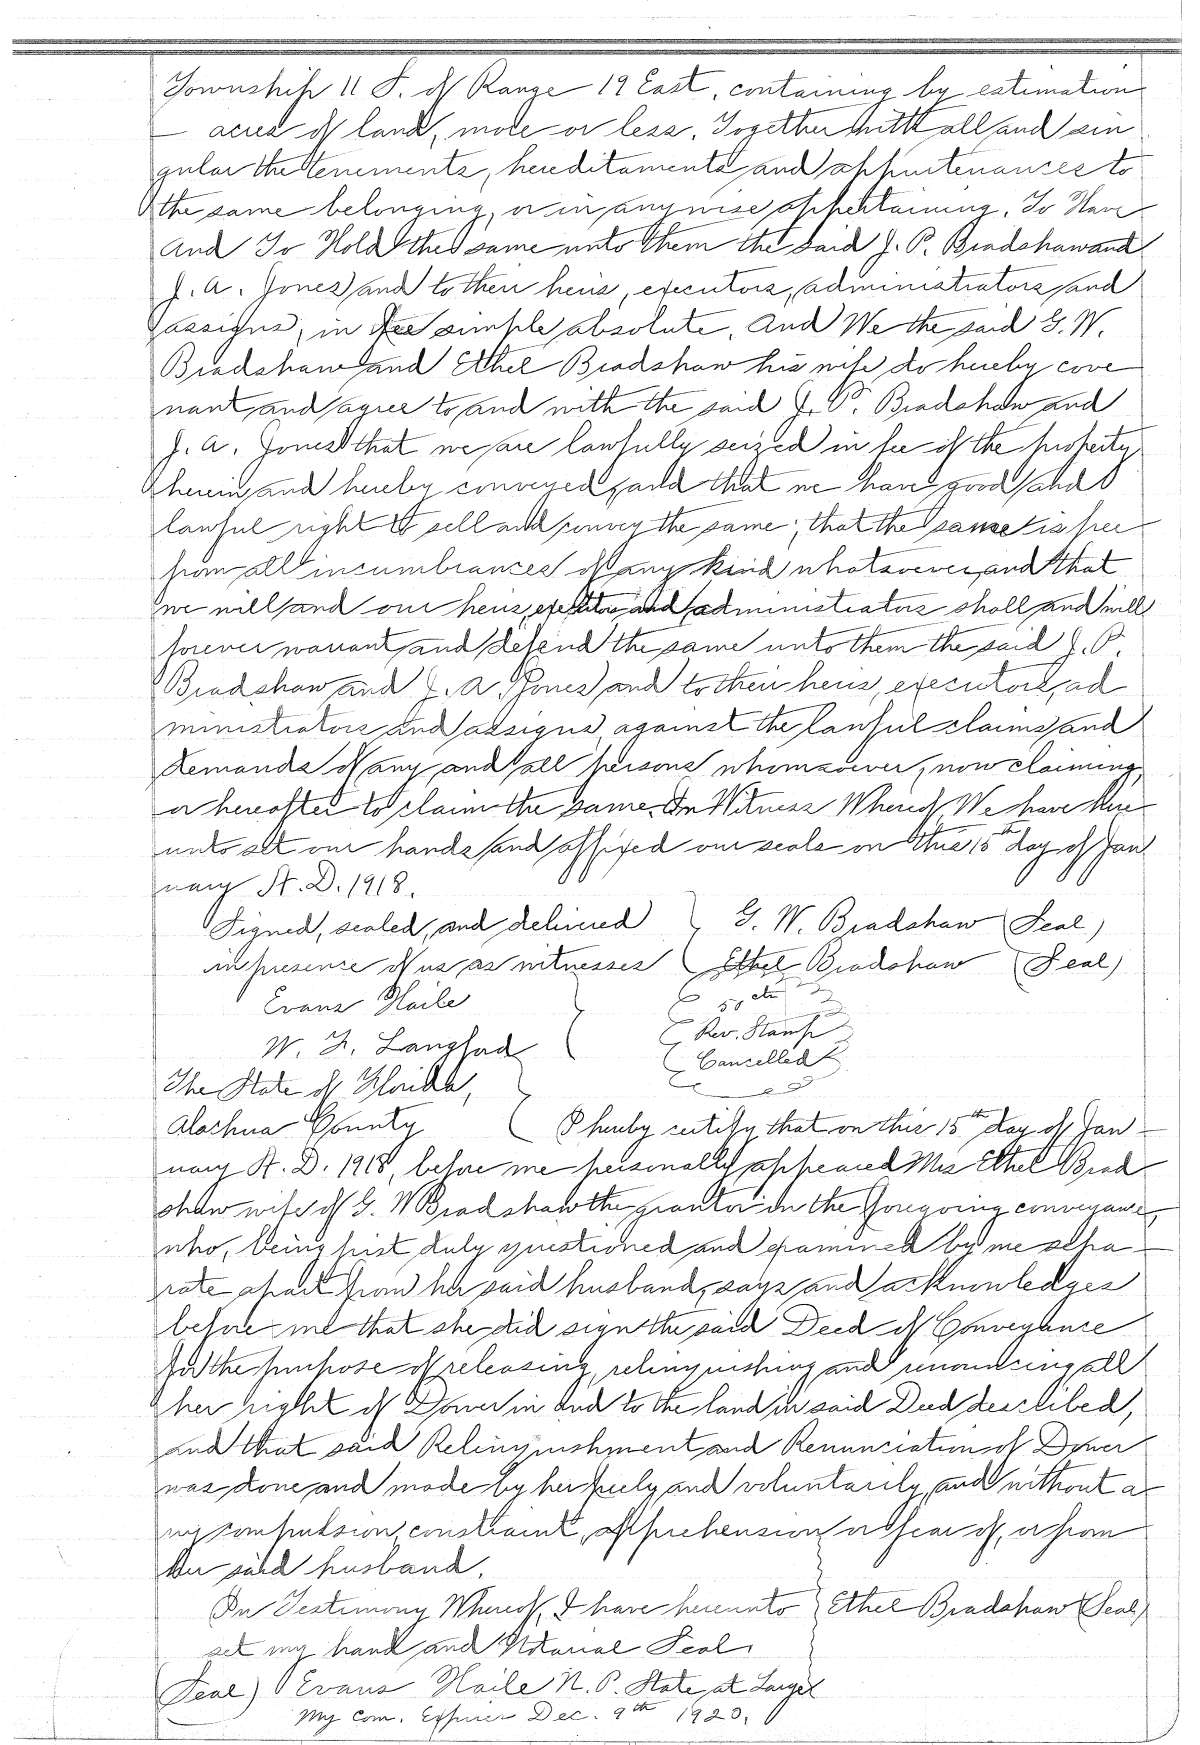 Township 11 S. of Range 19 East, containing by estimation
— acres of land, more or less. Together with all and sin
gular the tenements, hereditaments and appurtenances to
the same belonging, or in anywise appertaining. To Have
And To Hold the same unto them the said J. P. Bradshaw and
J. A. Jones and to their heirs, executors, administrators and
assigns, in fee simple absolute. And We the said G. W.
Bradshaw and Ethel Bradshaw his wife do hereby cove
nant and agree to and with the said J. P. Bradshaw and
J. A. Jones that we are lawfully seized in fee of the property
herein and hereby conveyed, and that we have good and
lawful right to sell and convey the same; that the same is free
from all incumbrances of any kind whatsoever, and that
we will and our heirs, executors and administrators shall and will
forever warrant and defend the same unto them the said J. P.
Bradshaw and J. A. Jones and to their heirs, executors, ad
ministrators and assigns, against the lawful claims and
demands of any and all persons whomsoever, now claiming,
or hereafter to claim the same. In Witness Whereof, We have here
unto set our hands and affixed our seals on this 15th day of Jan
uary A. D. 1918.
Signed, sealed, and delivered } G. W. Bradshaw (Seal)
in presence of us as witnesses Ethel Bradshaw (Seal)
Evans Haile 50 cts
W. F. Langford Rev. Stamp
Cancelled
The State of Florida,
Alachua County I hereby certify that on this 15th day of Jan-
uary A. D. 1918, before me personally appeared Mrs Ethel Brad
shaw wife of G. W Bradshaw the grantor in the foregoing conveyance,
who, being first duly questioned and examined by me sepa-
rate apart from her said husband, says and acknowledges
before me that she did sign the said Deed of Conveyance
for the purpose of releasing, relinquishing and renouncing all
her right of Dower in and to the land in said Deed described,
and that said Relinquishment and Renunciation of Dower
was done and made by her freely and voluntarily, and without a
ny compulsion, constraint, apprehension or fear of, or from
her said husband.
In Testimony Whereof, I have hereunto } Ethel Bradshaw (Seal)
set my hand and Notarial Seal.
(Seal) Evans Haile N. P. State at Large
My Com. Expires Dec. 9th 1920.